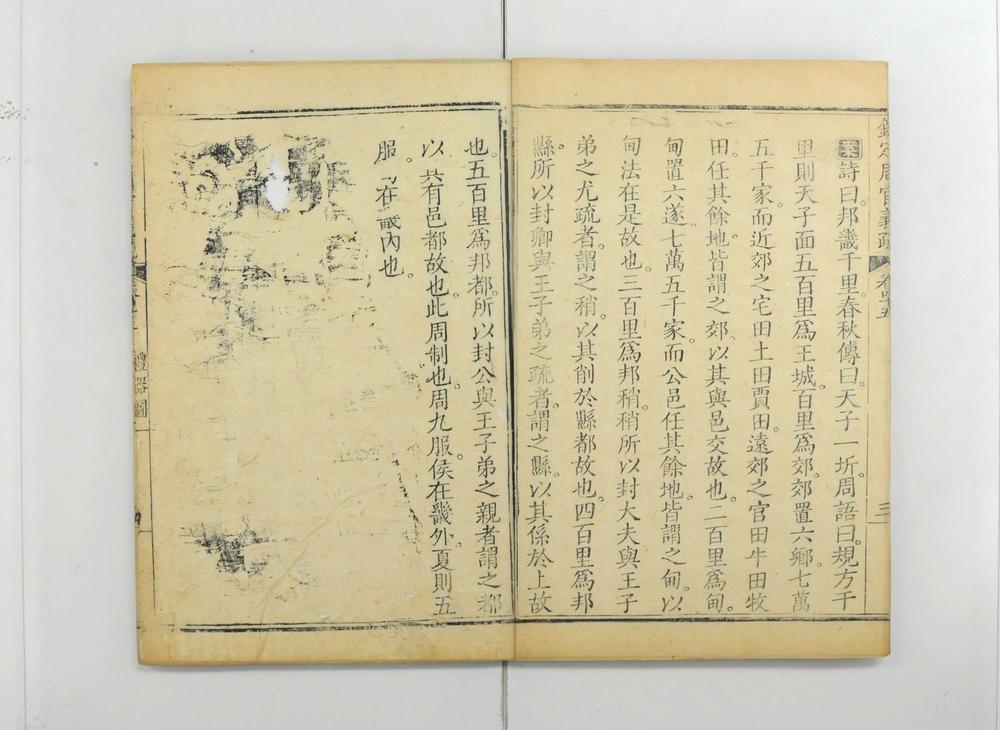 欽定周官義疏 卷四十五 三
案詩曰邦畿千里春秋傳曰天子一圻周語曰規方千
里則天子面五百里爲王城百里爲郊郊置六鄉七萬
五千家而近郊之宅田土田賈田遠郊之官田牛田牧
田任其餘地皆謂之郊以其與邑交故也二百里爲甸
甸置六遂七萬五千家而公邑任其餘地皆謂之甸以
甸法在是故也三百里爲邦稍稍所以封大夫與王子
弟之尤疏者謂之稍以其削於縣都故也四百里爲邦
縣所以封卿與王子弟之疏者謂之縣以其係於上故
也五百里爲邦都所以封公與王子弟之親者謂之都
以其有邑都故也此周制也周九服侯在畿外夏則五
服 在畿內也
禮器圖